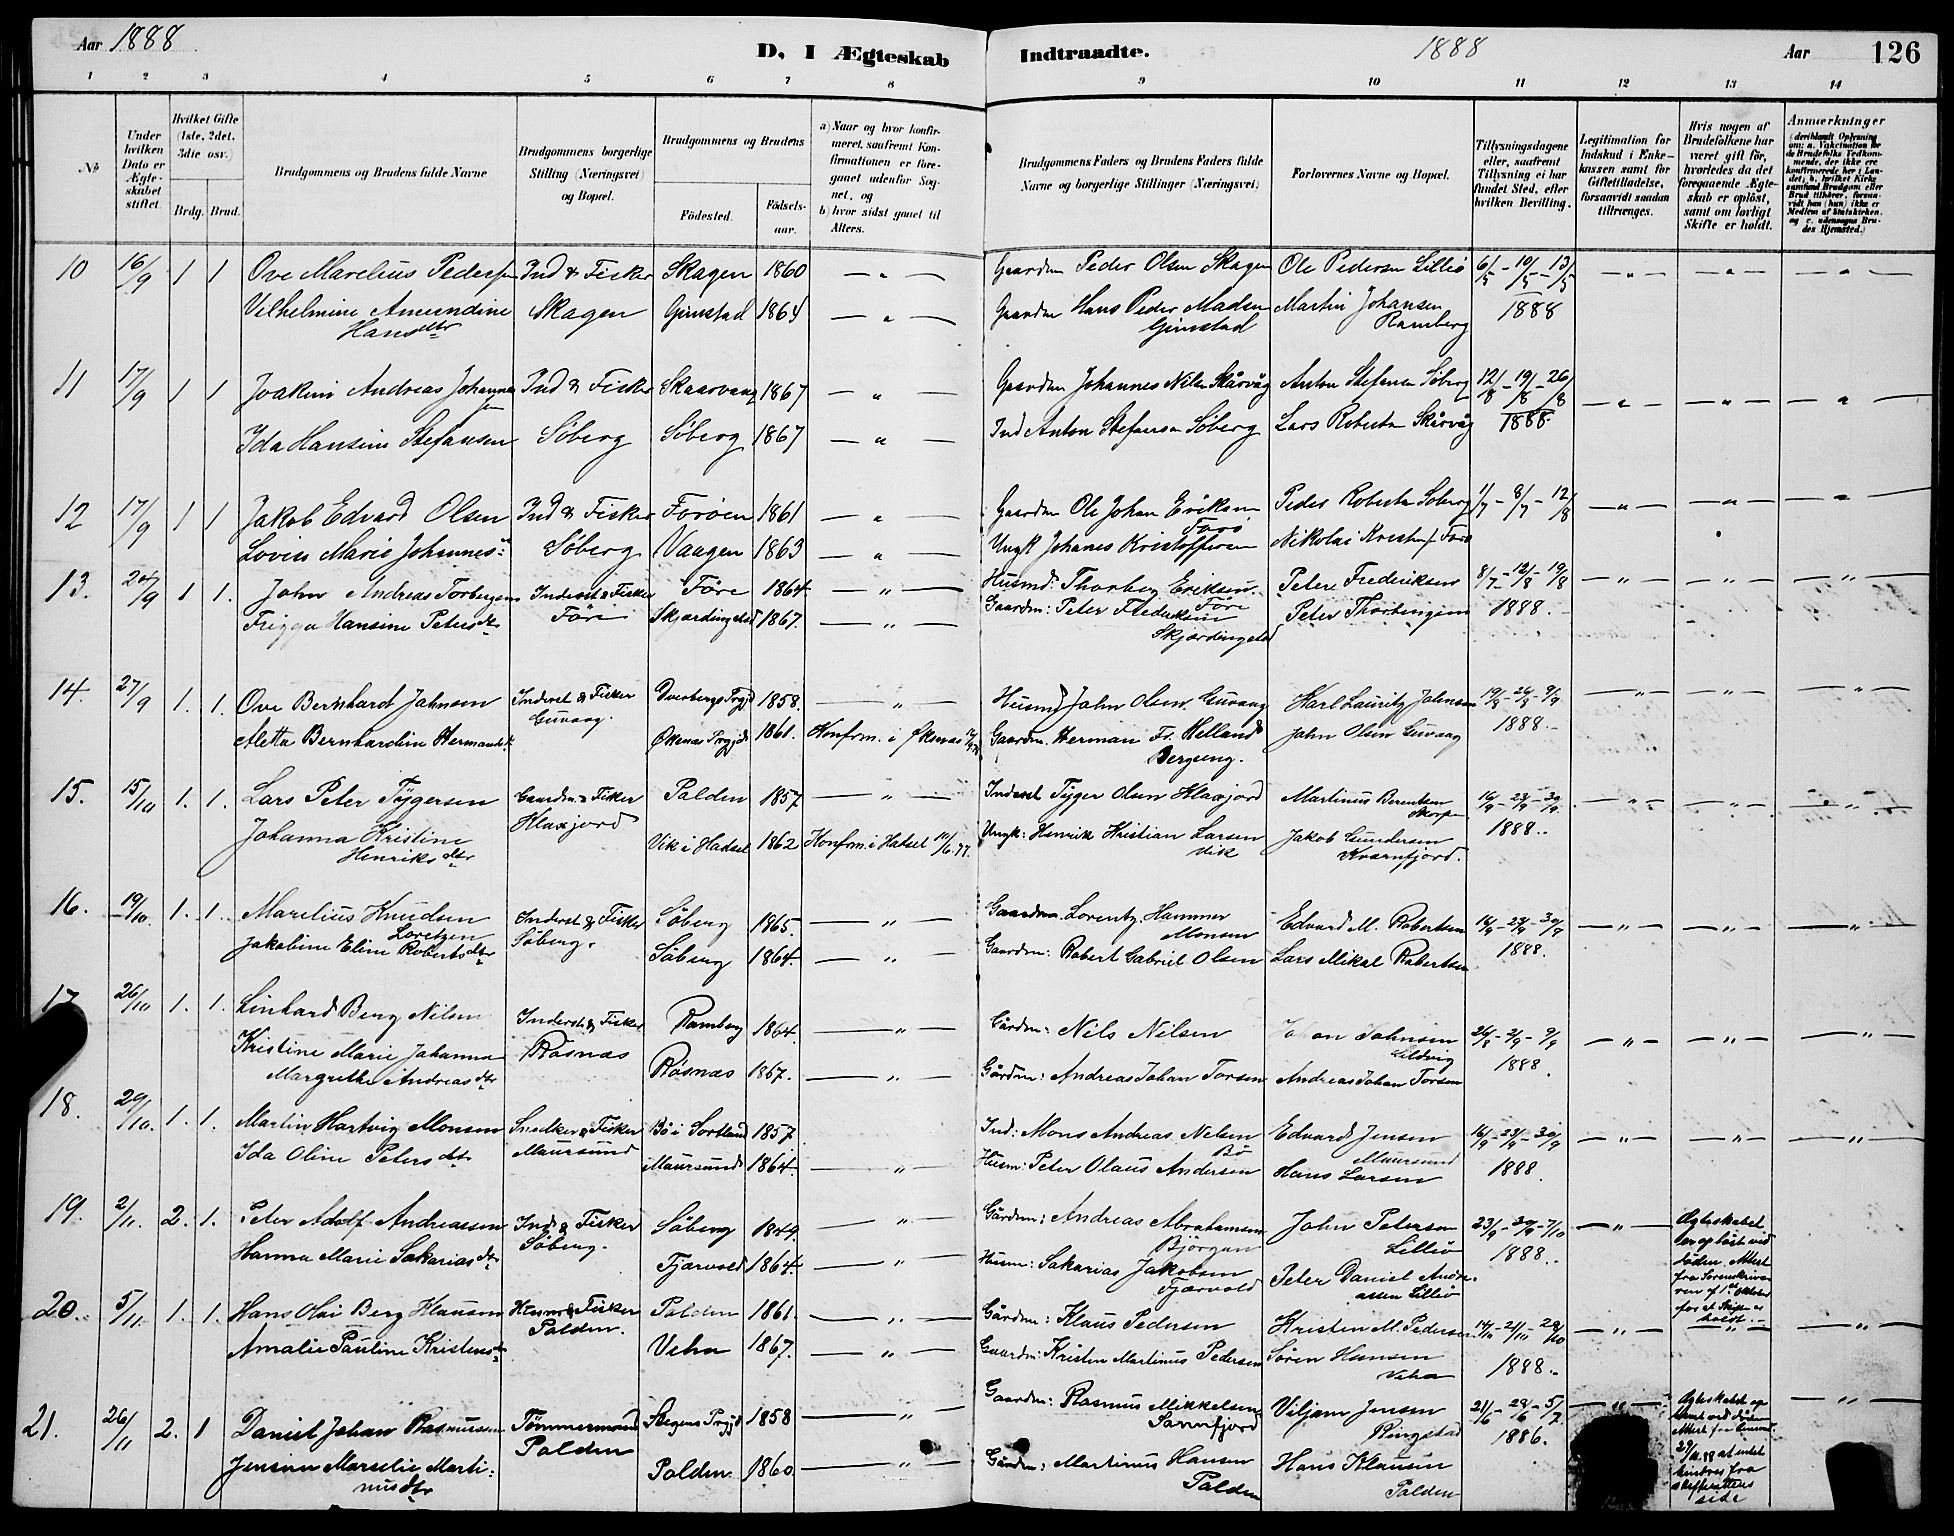 Aar 1888
D, I Ægteskab Indtraadte.
1888
Aar 126
1 2 3 4 5 6 7 8 9 10 11 12 13 14
No
Under hvilken Dato er Ægteskabet stiftet.
Hvilket Gifte (1ste, 2det, 3die osv.)
Brdg. Brud.
Brudgommens og Brudens fulde Navne
Brudgommens borgerlige Stilling (Næringsvei) og Bopæl.
Brudgommens og Brudens
Födested.
Födselsaar.
a) Naar og hvor konfirmeret, saafremt Konfirmationen er foregaaet udenfor Sognet, og
b) hvor sidst gaaet til Alters.
Brudgommens Faders og Brudens Faders fulde Navne og borgerlige Stillinger (Næringsvei)
Forlovernes Navne og Bopæl.
Tillysningsdagene eller, saafremt Tillysning ei har fundet Sted, efter hvilken Bevilling.
Legitimation for Indskud i Enkekassen samt for Giftetilladelse, forsaavidt saadan tiltrænges.
Hvis nogen af Brudefolkene har været gift för, hvorledes da det foregaaende Ægteskab er oplöst, samt om lovligt Skifte er holdt.
Anmærkninger
10 16/9 1 1 Ove Marelius Pedersen Ind & Fisker Skagen 1860 — " — Gaardm Peder Olsen Skagen Ole Pedersen Lilleö 6/5 - 10/5 - 13/5 — " — — " — — " —
Vilhelmine Amundine Skagen Gimstad 1864 — " — Gaardm Hans Peder Madsen Martin Johansen 1888
Hansdtr Gimstad Ramberg
11 17/9 1 1 Joakim Andreas Johannessen Ind & Fisker Skaarvaag 1867 — " — Gaardm Johannes Nilsen Skårvåg Anton Stefansen Söberg 12/8 - 19/8 - 26/8 — " — — " — — " —
Ida Hansine Stefansen Söberg Söberg 1867 — " — Ind Anton Stefansen Söberg Lars Robertsen Skårvåg 1888.
12 17/9 1 1 Jakob Edvard Olsen Ind & Fisker Foröen 1861 — " — Gaardm Ole Johan Eriksen Peder Robertsen Söberg 1/7 - 8/7 - 12/8 — " — — " — — " —
Lovise Marie Johannesdtr Söberg Vaagen 1863 — " — Ungk Johanes Kristoffersen Nikolai
13. 24/9 1 1. John Andreas Torbergsen Inderst & Fisker Före 1864. — " — Husmd: Thorberg Eriksen. Peter Frederiksen 8/7 - 12/8 - 19/8 — " — — " — — " —
Frigga Hansine Petersdtr Före Skjærdingstad 1867. — " — Gaardm: Peter Frederiksen Peter Thorbergsen 1888.
Skjærdingstad
14. 27/9 1. 1. Ove Bernhardt Johnsen Inderst & Fisker Dverbergs Prgjd 1858. — " — Husmd John Olsen Guvaag Karl Lauritz Johnsen 19/8 - 26/8 - 9/9 — " — — " — — " —
Aletta Bernhardine Hermansdtr Guvaag. Øksnæs Prgjd 1861. Konfrm. i Øksnæs Gaardm. Herman Fr. Helland John Olsen Guvaag 1888.
Bergseng.
15. 15/10 1. 1. Lars Peter Tygersen Gaardm. & Fisker Polden 1857 — " — Inderst Tyger Olsen Klaxjord Martinus Berentsen 16/9 - 23/9 - 30/9. — " — — " — — " —
Johanna Kristine Klaxjord Vik i Hadsel 1862 Konfrm. i Hadsel 10/6.77. Ungk: Henrik Kristian Larsen Jakob Gundersen 1888.
Henriksdtr Vik Kværnfjord.
16. 19/10. 1. 1. Marelius Knudsen Inderst & Fisker Söberg 1865. — " — Gaardm. Lorentz Hammer Edvard M. Robertsen 16/9 - 23/9 - 30/9 — " — — " — — " —
Loretzen Söberg. Monsen
Jakobine Eline Robertsdtr Söberg 1864. — " — Gaardm: Robert Gabriel Olsen Lars Mikal Robertsen 1888.
17 26/10 1. 1. Linhard Berg Nilsen Inderst & Fisker Ramberg 1864. — " — Gårdm: Nils Nilsen Johan Johnsen 26/8 - 2/9 - 9/9 — " — — " — — " —
Kristine Marie Johanna Rösnæs Rösnæs 1867. — " — Gårdm: Andreas Johan Torsen Andreas Johan Torsen 1888.
Margrethe Andreasdtr
18. 29/10. 1. 1. Martin Hartvig Monsen Snedker & Fisker Bö i Sortland 1857. Ind: Mons Andreas Nelsen Edvard Jensen 16/9 - 23/9 - 30/9 — " — — " — — " —
Ida Oline Petersdtr Maursund Maursund 1864. — " — Husm: Peter Olaus Andersen Hans Larsen 1888.
Bö Maursund
19. 2/11. 2. 1. Peter Adolf Andreassen Ind & Fisker Söberg 1849. — " — Gårdm: Andreas Abrahamsen John Petersen 23/9 - 30/9 - 7/10 — " — Ægteskabet
Hanna Marie Sakariasdtr Söberg. Fjærvold 1864. — " — Björgan Lilleö 1888. er oplöst ved
Husm: Sakarias Jakobsen Peter Daniel Andreassen Lilleö Döden. Attest
Fjærvold fra Sorenskriveren af 1ste Oktober for at Skifte er holdt.
20. 5/11. 1. 1. Hans Olai Berg Klausen Husm & Fisker Polden 1861. — " — Gårdm: Klaus Pedersen Kristen M. Pedersen 14/10 - 21/10 - 28/10 — " — — " — — " —
Amalie Pauline Kristensdtr Polden. Veha 1867. — " — Gaardm: Kristen Martinus Pedersen Sören Hansen 1888.
Veha
21. 26/11 2. 1 Daniel Johan Rasmussen Tömmermand Stegens Prgjd 1858 — " — Gaardm: Rasmus Mikkelsen Viljam Jensen 21/6 - 28/6 - 5/7 — " — Ægteskabet op
Sannfjord Ringstad 1886. löst ved Döden
Jensine Marselie Marti: Polden Polden 1860. — " — Gårdm: Martinus Hansen Hans Klausen
nusdtr Polden Polden
hindres fra skifterettens side